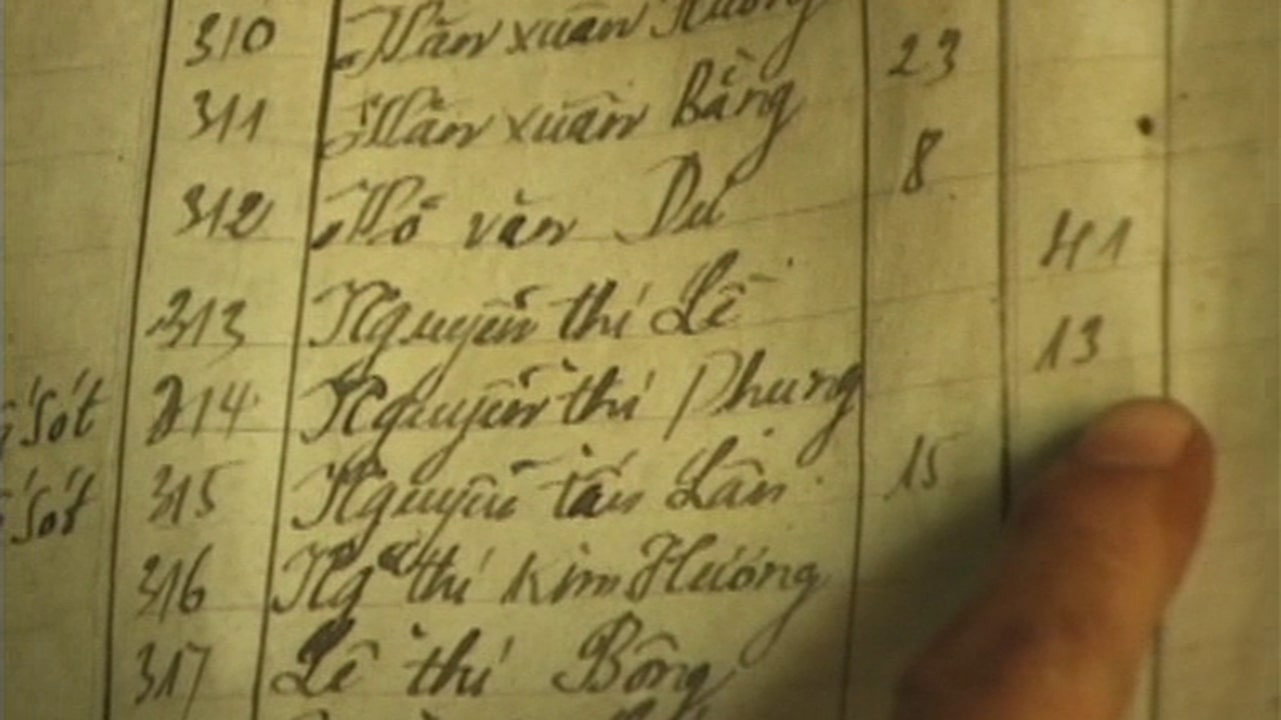 310 Văn xuân Hương
311 Văn xuân Bằng 23
312 Võ văn Dư 8
313 Nguyễn thị Lê 41
sót 314 Nguyễn thị Phung 13
sót 315 Nguyễn tấn Lân 15
316 Ng thị Kim Hương
317 Lê thị Bông